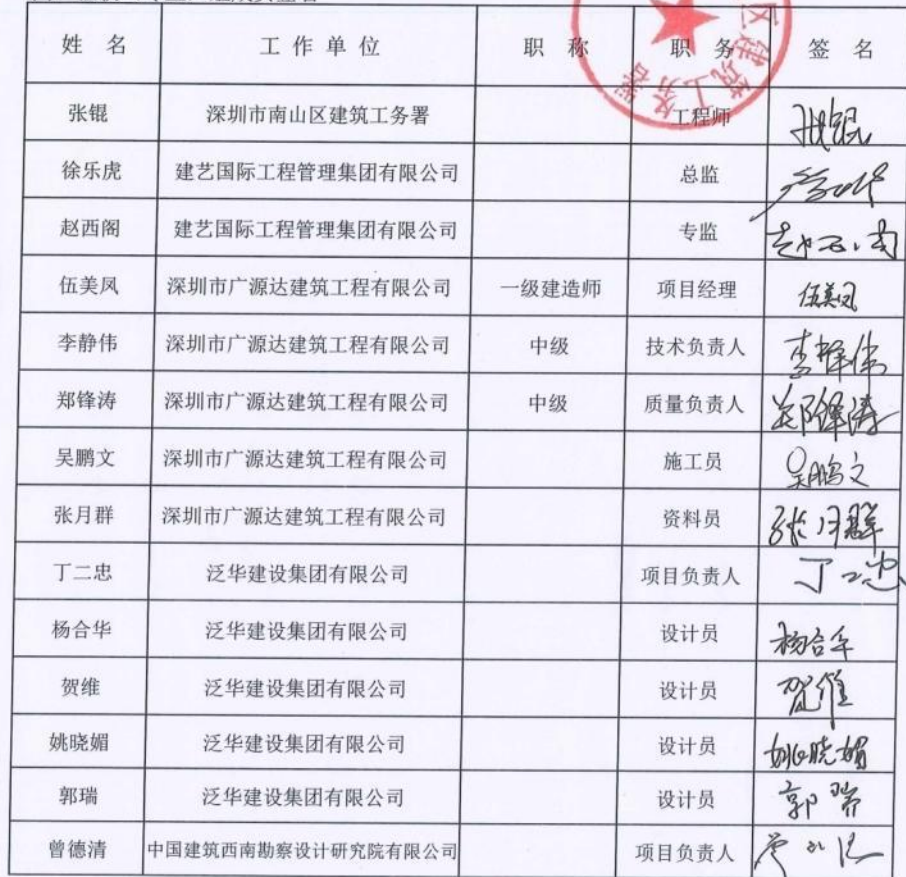 姓 名 工 作 单 位 职 称 职 务 签 名
张锟 深圳市南山区建筑工务署 工程师 张锟
徐乐虎 建艺国际工程管理集团有限公司 总监
赵西阁 建艺国际工程管理集团有限公司 专监
伍美凤 深圳市广源达建筑工程有限公司 一级建造师 项目经理 伍美凤
李静伟 深圳市广源达建筑工程有限公司 中级 技术负责人 李静伟
郑锋涛 深圳市广源达建筑工程有限公司 中级 质量负责人 郑锋涛
吴鹏文 深圳市广源达建筑工程有限公司 施工员 吴鹏文
张月群 深圳市广源达建筑工程有限公司 资料员 张月群
丁二忠 泛华建设集团有限公司 项目负责人 丁二忠
杨合华 泛华建设集团有限公司 设计员 杨合华
贺维 泛华建设集团有限公司 设计员 贺维
姚晓媚 泛华建设集团有限公司 设计员 姚晓媚
郭瑞 泛华建设集团有限公司 设计员 郭瑞
曾德清 中国建筑西南勘察设计研究院有限公司 项目负责人
区建筑工务署